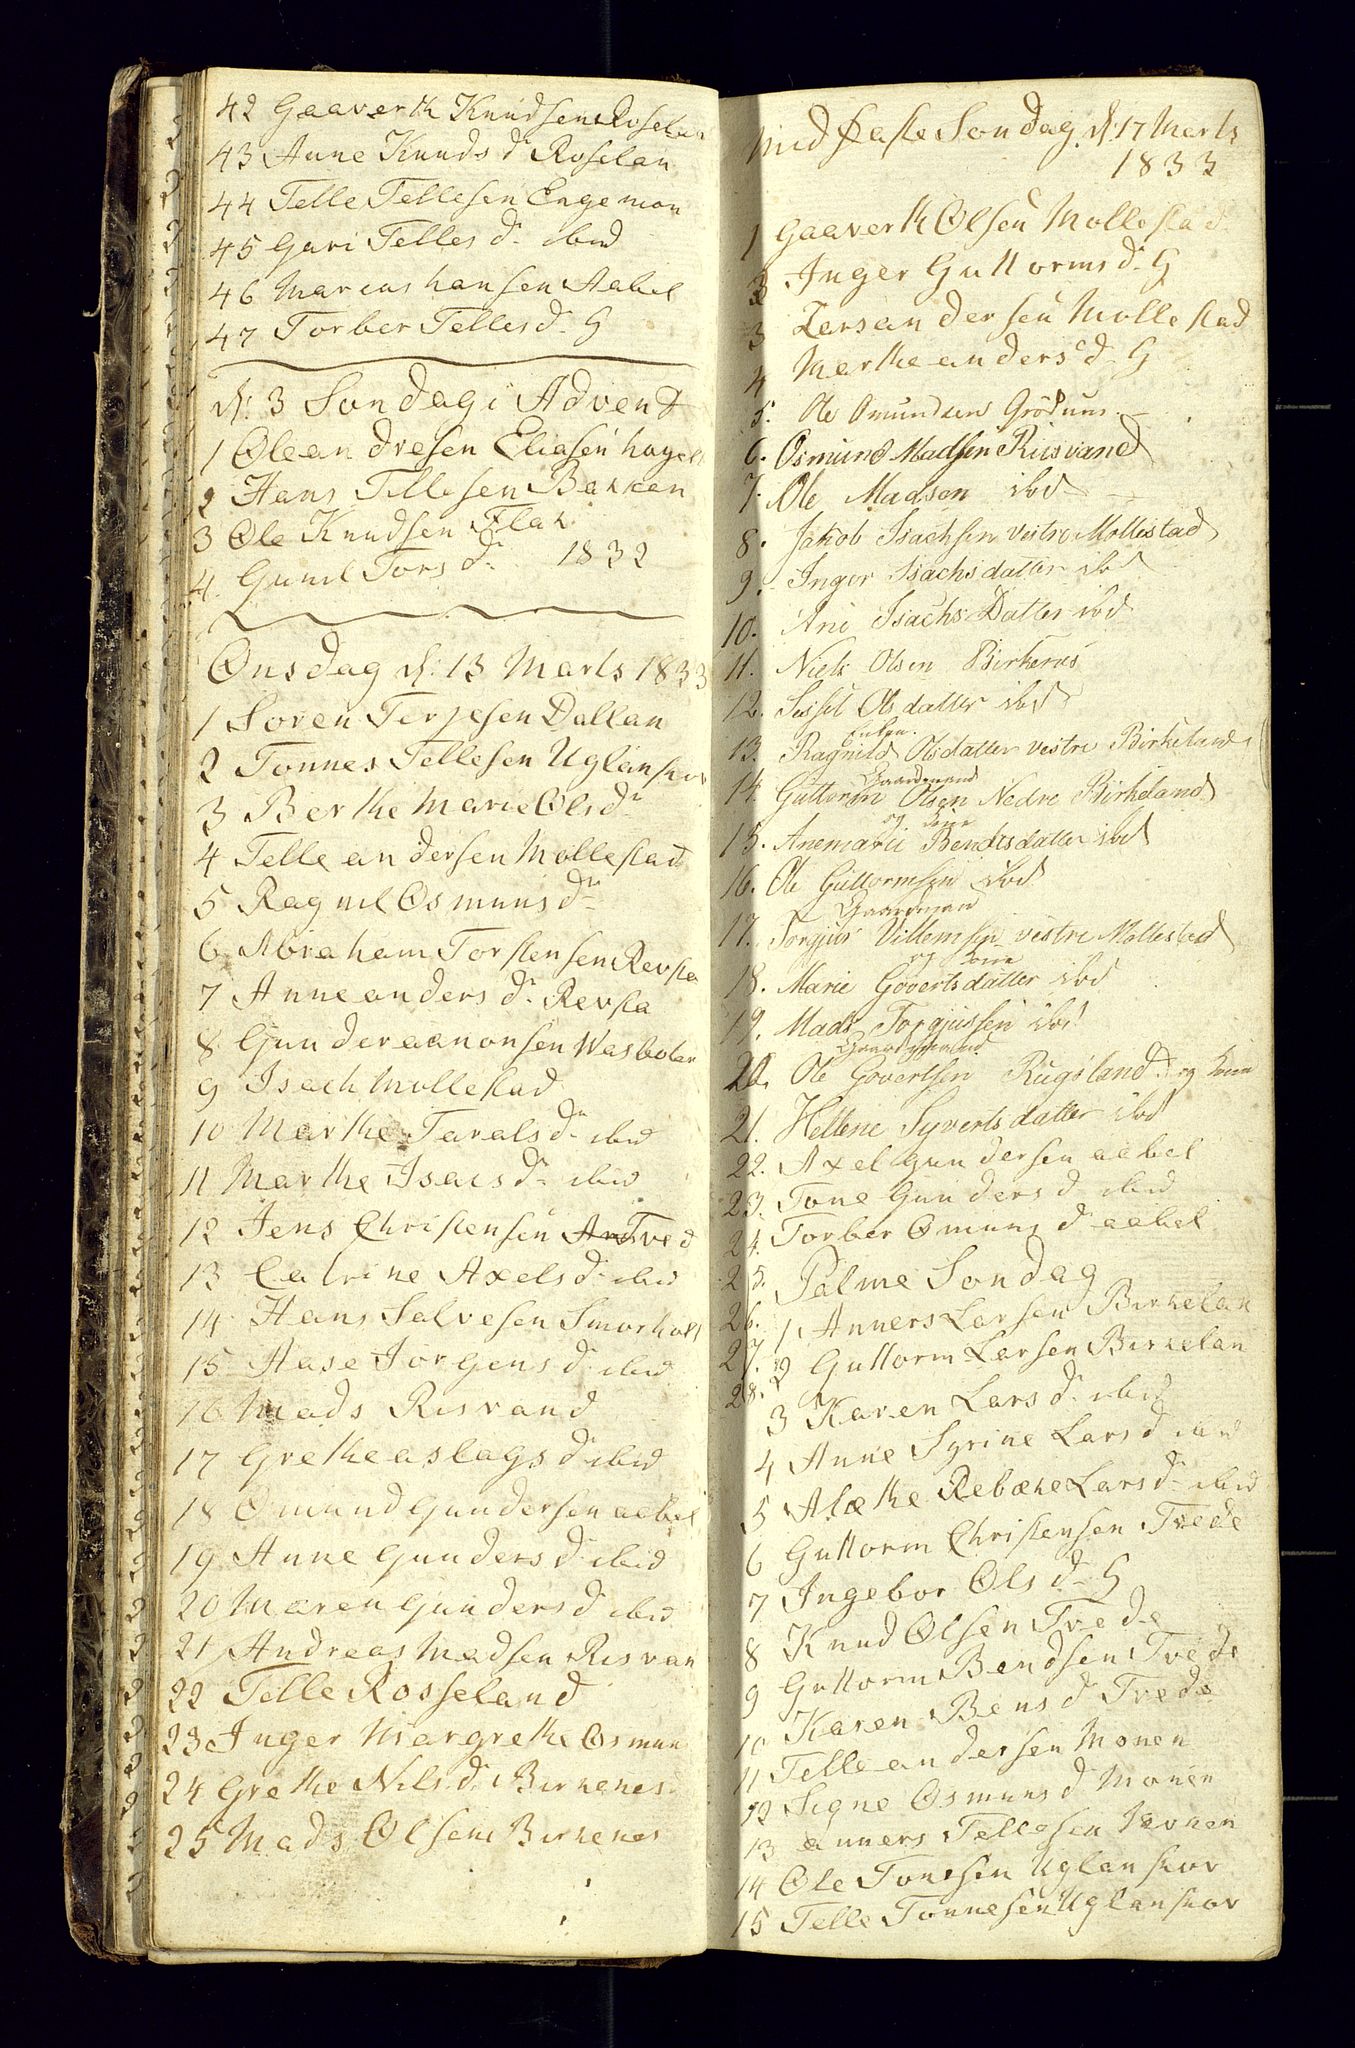 42 Gaaverth Knudsen Roselan
43 Anne Knuds dr Roselan
44 Telle Tellesen Engemon
45 Guri Telles d. ibid
46 Marcus hansen Aabel
47 Torber Telles d. G
d: 3 Søndag i Advent
1 Ole andresen Eliasen
2 Hans Tellesen Bakken
3 Ole Knudsen Flak
4. Gunil Tors dr 1832
Onsdag d: 13 Marts 1833
1 Soren Terjesen Dallan
2 Tonnes Tellesen Uglanskor
3 Berthe Marie Ols dr
4 Telle andersen Mollestad
5 Ragnil Osmuns dr
6 Abraham Torstensen Revsla
7 Anne anders dr Revsla
8 Gunder aanonsen
9 Isach Mollestad
10 Marthe Tarals dr ibid
11 Marthe Isacs dr ibid
12 Jens Christensen Tved
13 Catrine Axels dr ibid
14 Hans Salvesen Smorholt
15 Aase Jorgens d. ibid
16 Mads Risvand
17 Grethe aslags d. ibid
18 Omund Gundersen aabel
19 Anne Gunders d. ibid
20 Maren Gunders d. ibid
21 Andreas Madsen Risvan
22 Telle Rosseland
23 Inger Margrethe Osmun
24 Grethe Nils d. Birkenes
25 Mads Olsen Birkenes
Midfaste Søndag d: 17 Marts
1833
1 Gaaverth Olsen Mollestad
2 Inger Guttorms d. G
3 Lars andersen Mollestad
4 Marthe anders d. G
5. Ole Omundsen Grödum
6. Osmund Madsen Riisvand
7. Ole Madsen ibd
8. Jakob Isachsen vestre Mollestad
9. Inger Isachsdatter ibd
10. Ane Isachs Datter ibd
11. Niels Olsen Birkenes
12. Sissel Olsdatter ibd
Enken.
13. Ragnild Olsdatter vestre Birkeland
Gaardmand
14. Guttorm Olsen Nedre Birkeland
og Kone
15. Anemarie Bendtsdatter ibd
16. Ole Guttormsen ibd
Gaardmand
17. Torgjus Villemsen vestre Mollestad
og Kone
18. Marie Govertsdatter ibd
19. Mads Torgjussen ibd
Gaardmand
20. Ole Govertsen Rugsland og Kone
21. Hellene Syvertsdatter ibd
22. Axel gundersen aabel
23. Tone Gunders d ibid
24. Torber Omuns d. aabel
25. Palme Sondag
26. 1 Anners Larsen Birkelan
27. 2 Guttorm Larsen Birkelan
28. 3 Karen Lars d. ibid
4 Anne Syrine Lars d ibid
5 Alethe Rebæke Lars d. ibid
6 Guttorm Christensen Tvede
7 Ingebor Ols d. G
8 Knud Olsen Tvede
9 Guttorm Bendsen Tvede
10 Karen Bens d Tvede
11 Telle andersen Monen
12 Signe Osmuns d Monen
13 anners Tellesen Monen
14 Ole Tonesen Uglanskor
15 Telle Tonnesen Uglanskor